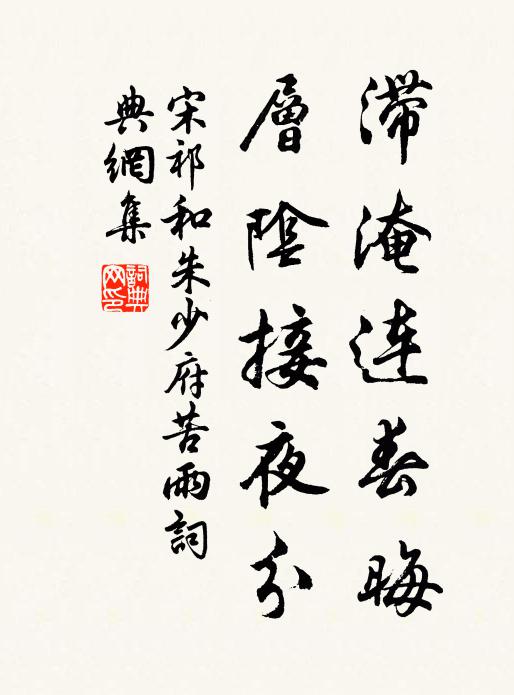 滯淹連春晦
層陰接夜分
宋祁和朱少府苦雨詞
典網集
詞典網印